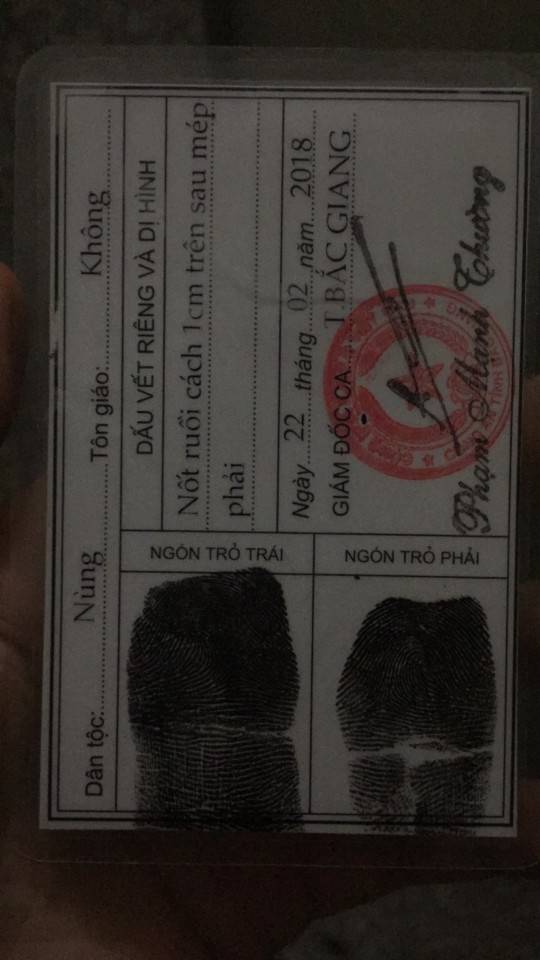 Dân tộc:..........Nùng..........Tôn giáo:..........Không..........
DẤU VẾT RIÊNG VÀ DỊ HÌNH
Nốt ruồi cách 1cm trên sau mép
phải
Ngày...22...tháng...02...năm...2018...
GIÁM ĐỐC CA...T.BẮC GIANG
Phạm Manh Thường
NGÓN TRỎ TRÁI
NGÓN TRỎ PHẢI